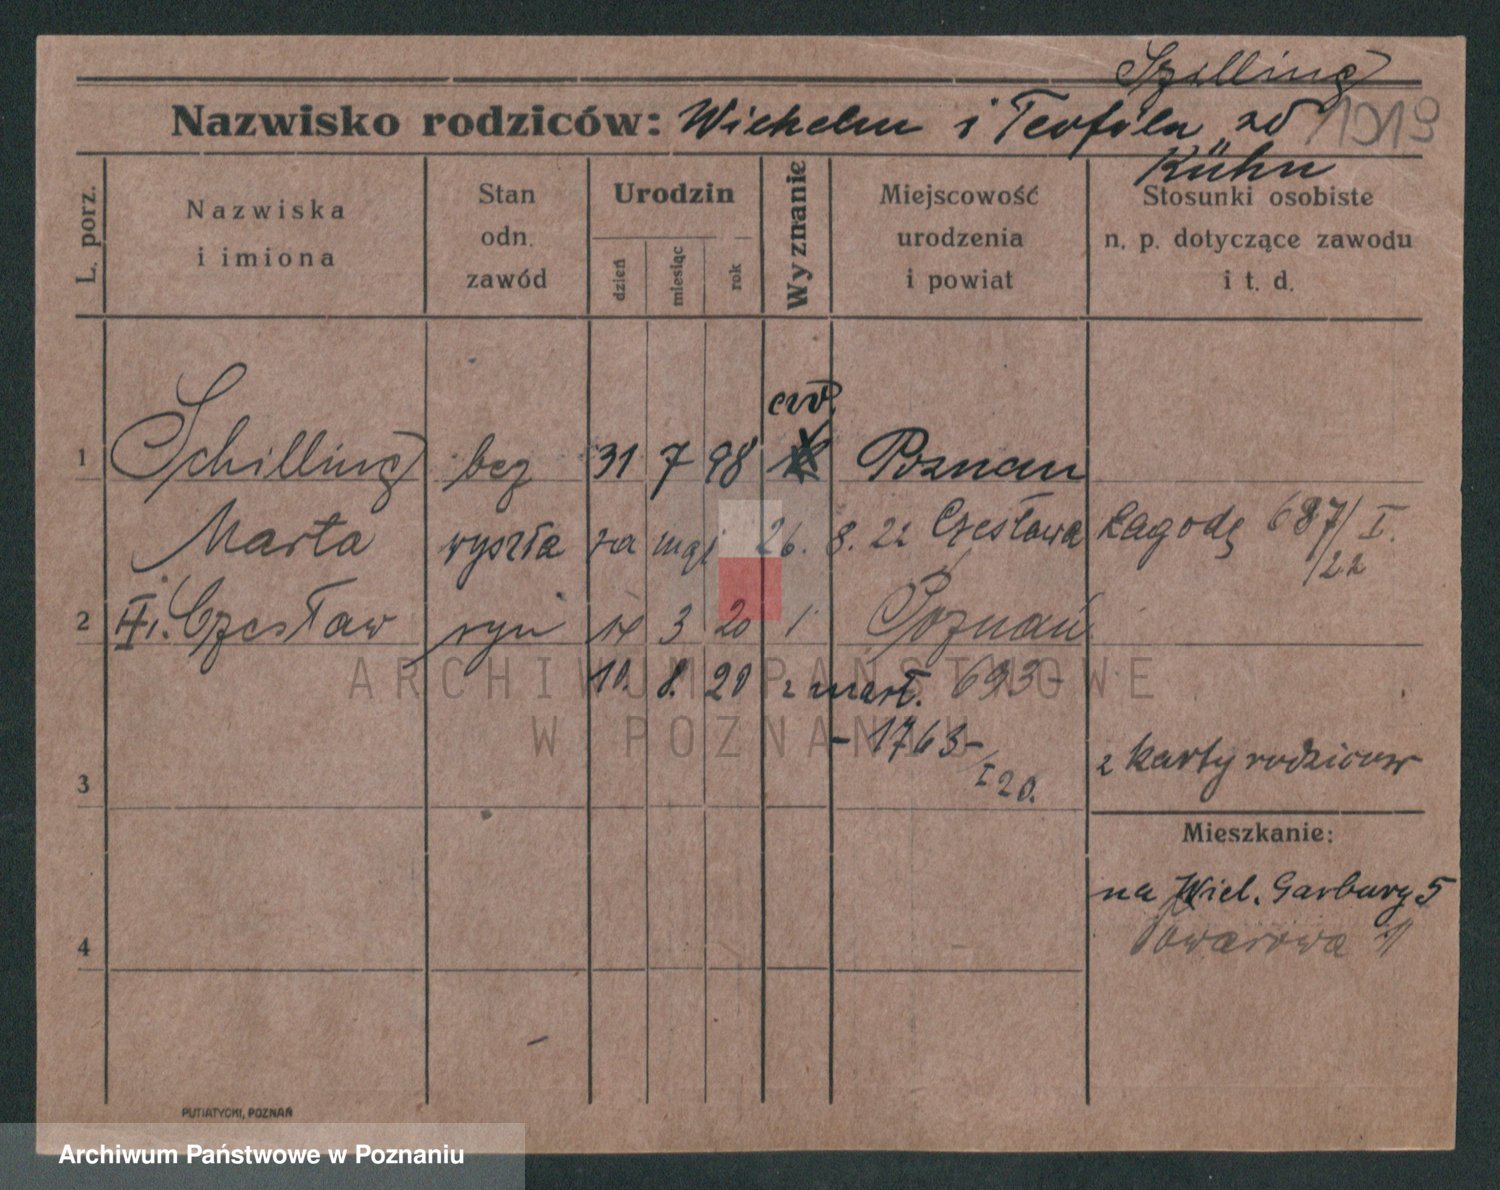 Szilling
Nazwisko rodziców: Wichelm i Teofila zd 1919
Kühn
L. porz.
Nazwiska
i imiona
Stan
odn.
zawód
Urodzin
dzień
miesiąc
rok
Wyznanie
Miejscowość
urodzenia
i powiat
Stosunki osobiste
n. p. dotyczące zawodu
i t. d.
ew.
1 Schilling bez 31 7 98 Poznań
Marta wyszła za mąż 26. 8. 22 Czesława Łagodę 687/I.
/22
2 II. Czesław syn 14 3 20 1 Poznań
10. 8. 20 zmarł. 693-
- 1763-
/I 20.
3 z karty rodziców
Mieszkanie:
na Wiel. Garbary 5
Towarowa
4
ARCHIWUM PAŃSTWOWE
W POZNANIU
PUTIATYCKI, POZNAŃ
Archiwum Państwowe w Poznaniu